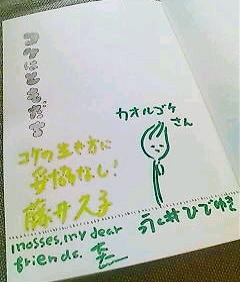 コケはともだち
カオルゴケ
さん
コケの生き方に
妥協なし!
藤井久子
永井ひでゆき
mosses, my dear
friends.